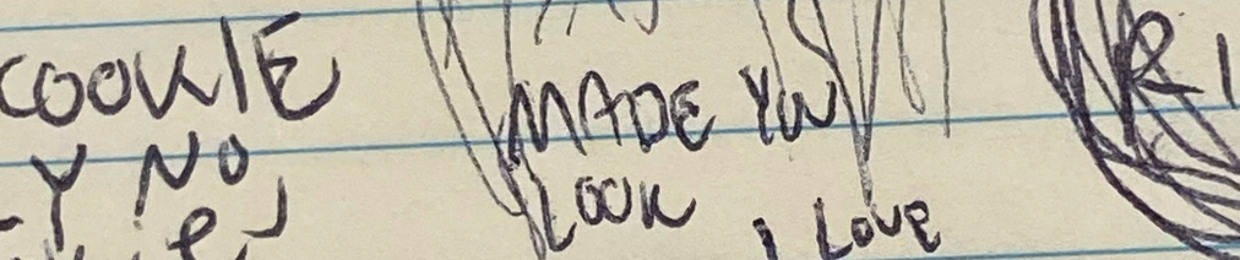 COOKIE
Y NO
MADE YOU
LOOK
I LOVE
R I